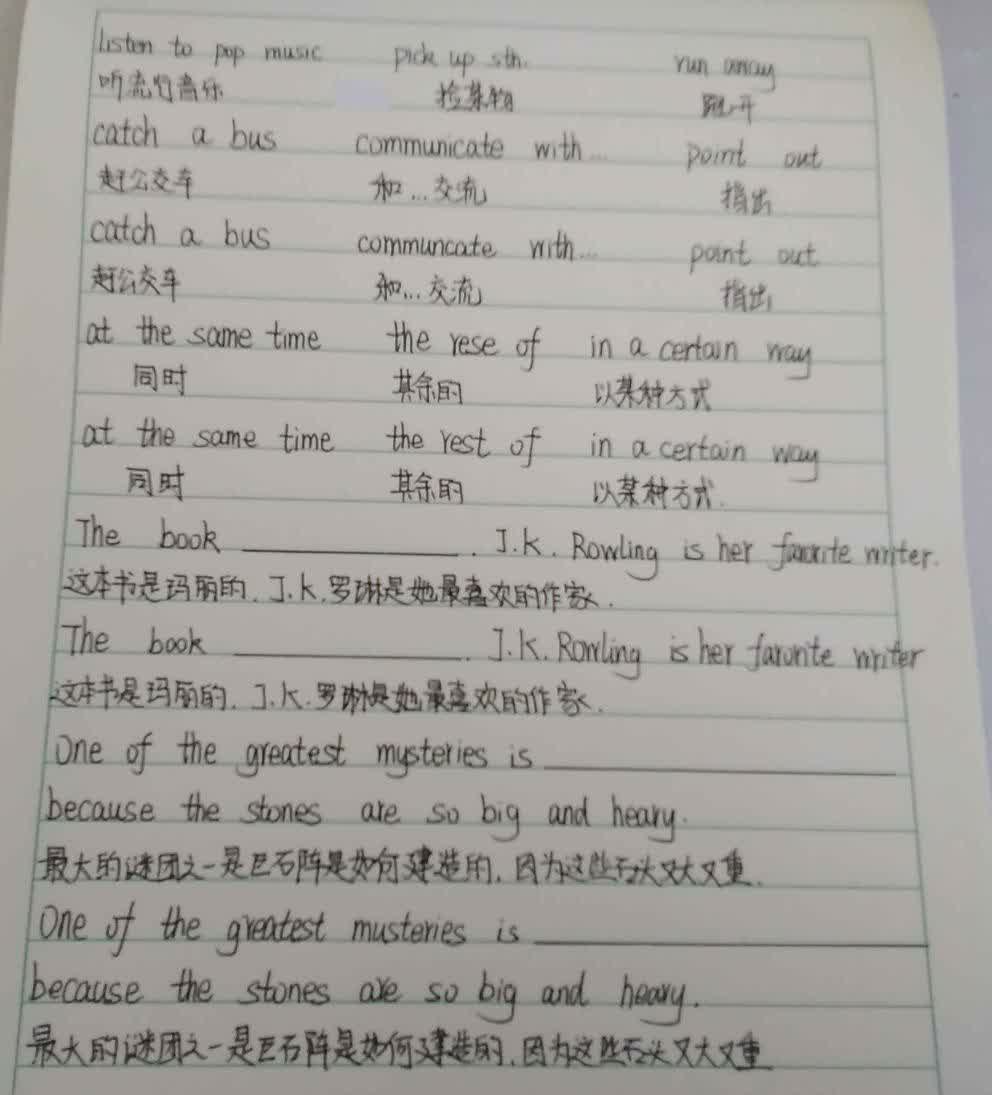 listen to pop music pick up sth. run away
听流行音乐 捡某物 跑开
catch a bus communicate with... point out
赶公交车 和...交流 指出
catch a bus communcate with... point out
赶公交车 和...交流 指出
at the same time the rese of in a certain way
同时 其余的 以某种方式
at the same time the rest of in a certain way
同时 其余的 以某种方式.
The book ____________. J.K. Rowling is her favorite writer.
这本书是玛丽的. J.K.罗琳是她最喜欢的作家.
The book ____________. J.K. Rowling is her favorite writer
这本书是玛丽的. J.K.罗琳是她最喜欢的作家.
One of the greatest mysteries is ____________
because the stones are so big and heavy.
最大的谜团之一是巨石阵是如何建造的, 因为这些石头又大又重.
One of the greatest musteries is ____________
because the stones are so big and heavy.
最大的谜团之一是巨石阵是如何建造的, 因为这些石头又大又重